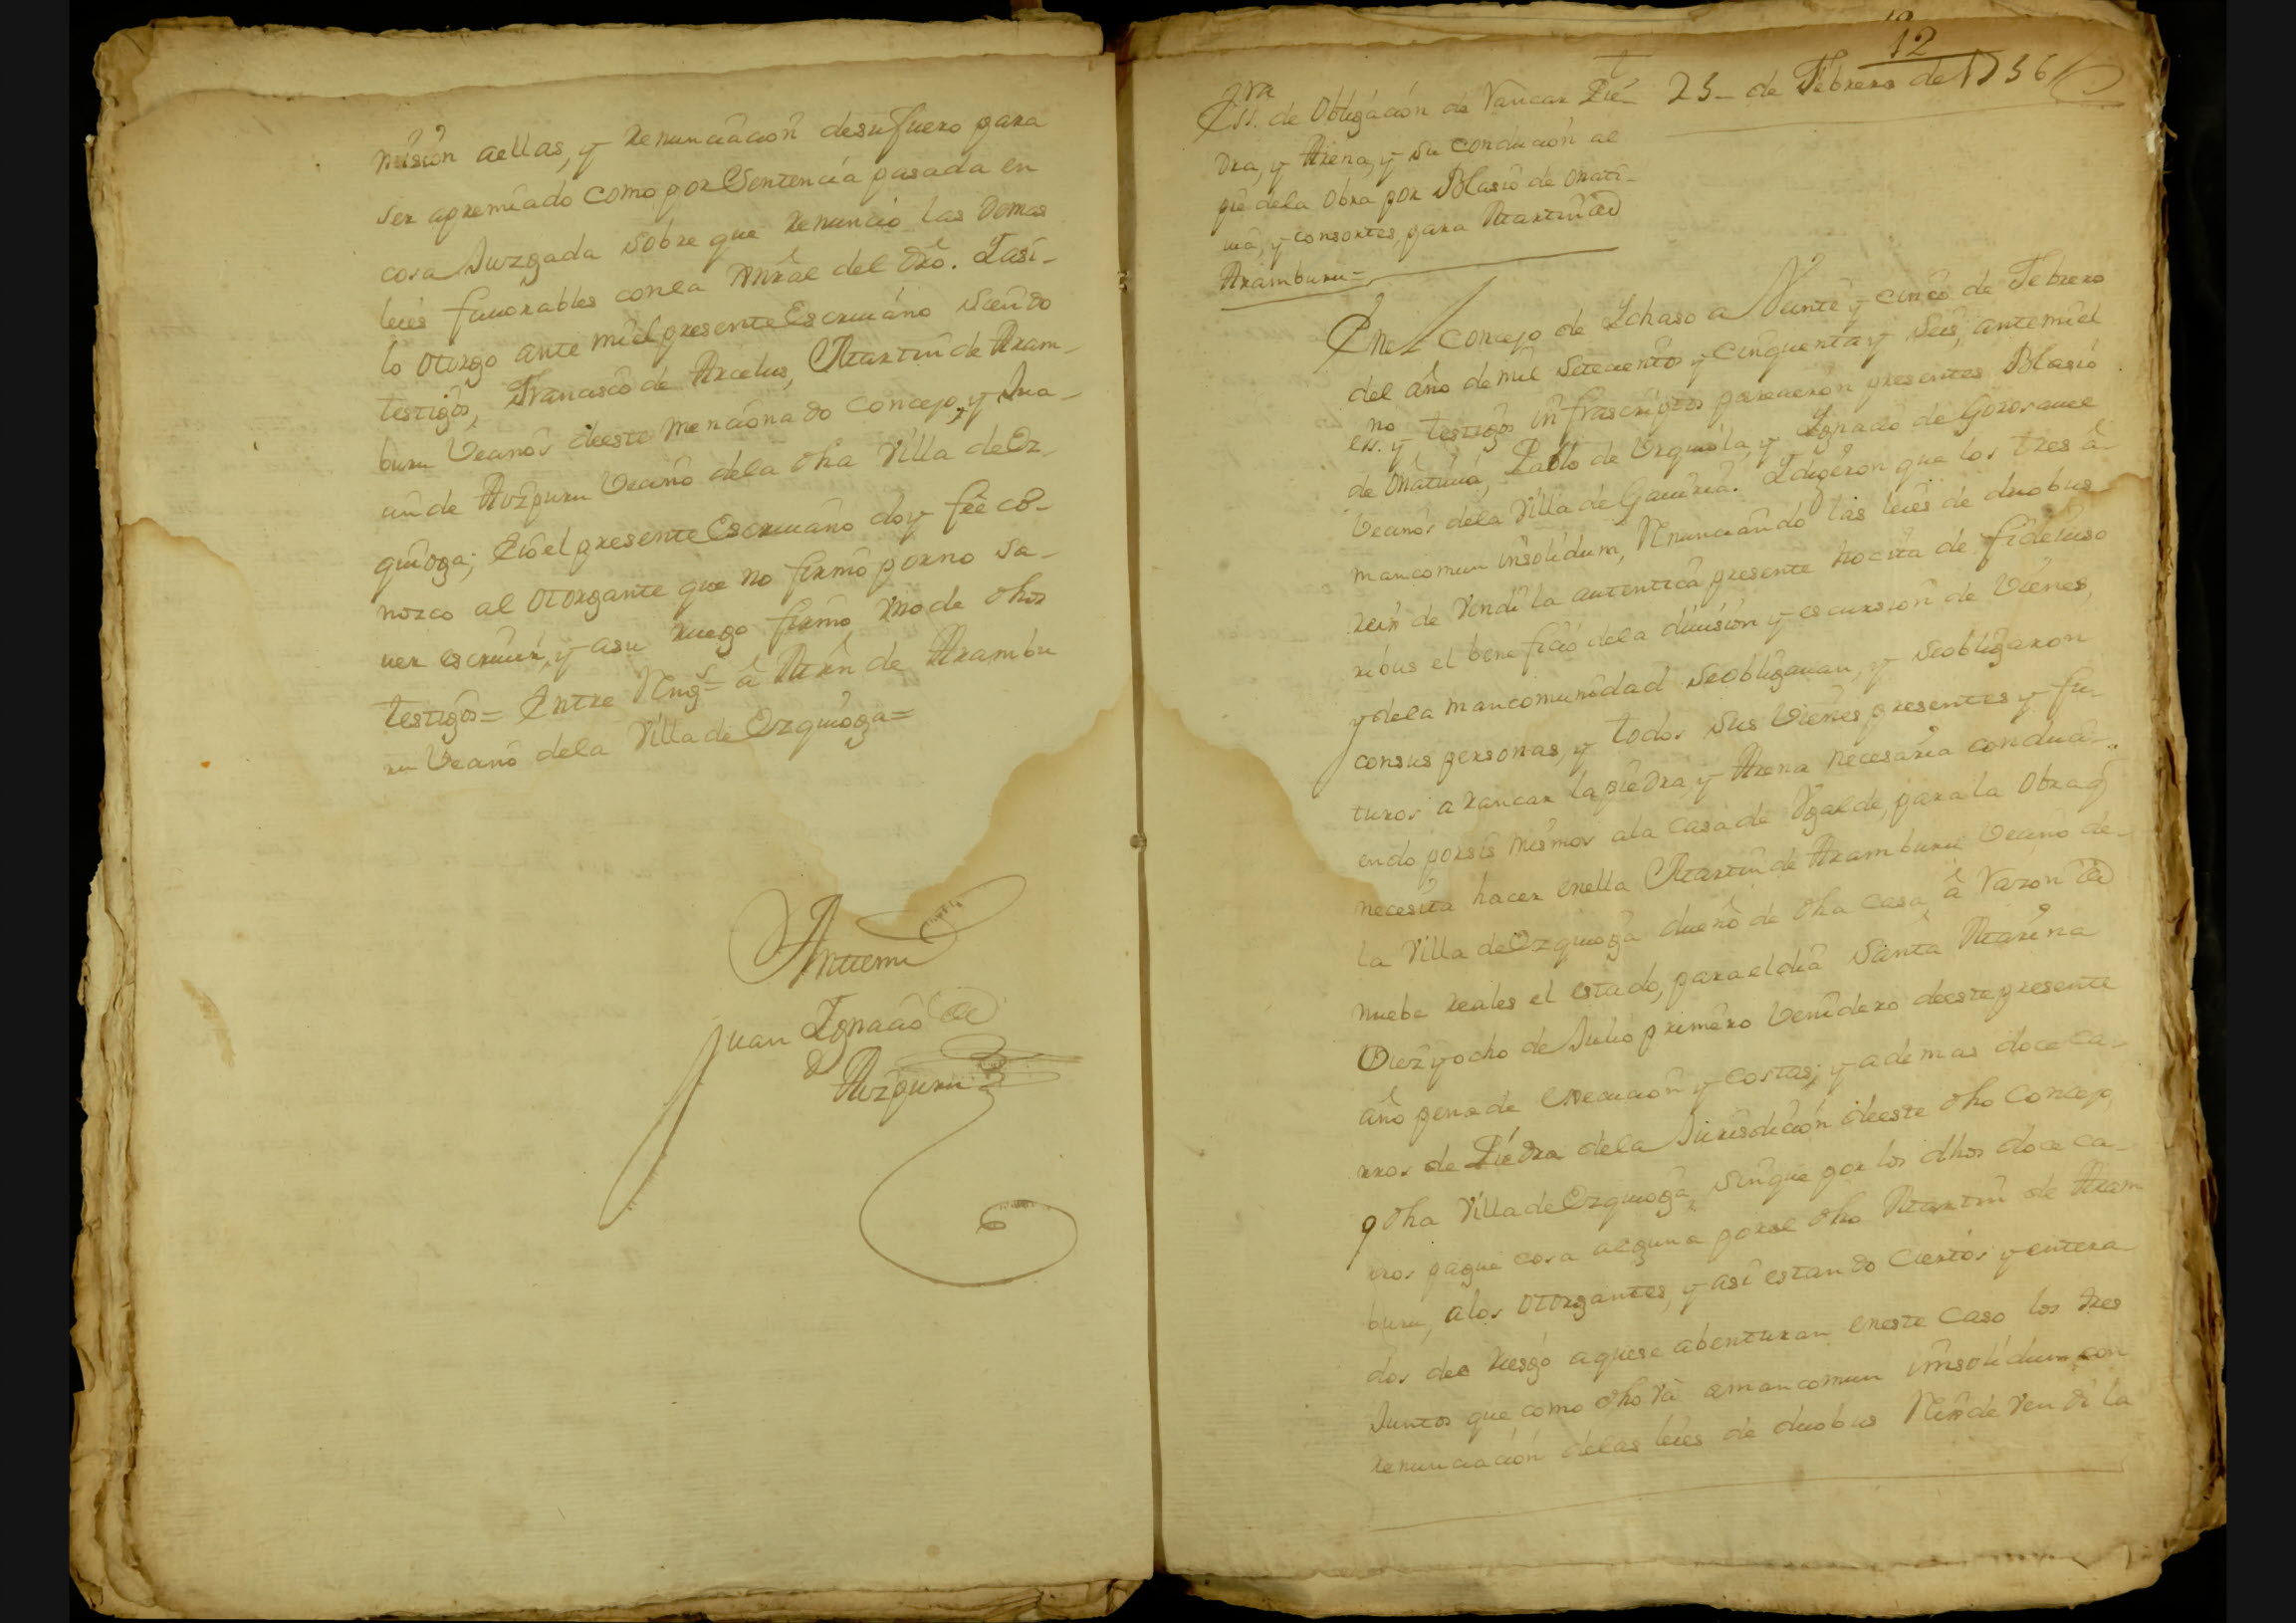 mision aellas, y renunciacion desufuero para
ser apremiado como por Sentencia pasada en
cosa Juzgada sobre que renuncio las demas
leies fauorables conla gnral del dro. Iasi-
lo otorgo ante miel presente Escriuano siendo
testigos, Francisco de Arcelus, Martin de Aram-
buru Vecinos deeste mencionado concejo, y Jua-
nin de Auzpuru Vecino dela dha Villa de Ez-
quioga; Eio el presente Escriuano doy feê co-
nozco al otorgante que no firmo porno sa-
uer escriuir, y asu ruego firmo vno de dhos
testigos= Entre Rengs= â Mrn de Arambu
ru Vecino dela Villa de Ezquioga=
Antemi
Juan Ignacio de
Auzpuru
12
12
25- de Febrero de 1756
Essra. de Obligación de Rancar Pie-
dra, y Arena, y su conducion al
pie dela Obra por Blasio de Onati-
uia, y consortes, para Martin de
Aramburu=
Enel concejo de Ichaso a Veinte y cinco de Febrero
del año de mil Setecientos y cinquenta y seis, antemi el
essno. y testigos infrascriptos parecieron presentes Blasio
de Onatiuia, Pablo de Vrquiola, y Ignacio de Gorosauel
Vecinos dela Villa de Gauiria. Idigeron que los tres â
mancomun insolidum, Renunciando las leies de duobus
reis de vendi la autentica presente hocita de fideiuso
ribus el beneficio dela diuision y escursion de Vienes,
y dela mancomunidad seobligauan, y seobligaron
consus personas, y todos sus Vienes presentes y fu-
turos a rancar lapiedra y Arena necesaria conduci-
endo porsis mismos ala casa de Vgalde, para la Obra q
necesita hacer enella Martin de Aramburu Vecino de-
la Villa de Ezquioga dueño de dha casa, â razon de
nuebe reales el estado, para el dia Santa Marina
Diez y ocho de Julio primero Venidero deeste presente
año pena de execucion y costas; y ademas doce ca-
rros de Piedra dela Jurisdicion deeste dho Concejo,
y dha Villa de Ezquioga, sinque por los dhos doce ca-
rros pague cosa alguna porel dho Martin de Aram
buru, alos otorgantes, y asi estando ciertos y entera
dos del riesgo aquese abenturan eneste caso los tres
Juntos que como dho va amancomun imsolidum con
renunciacion delas leies de duobus Reis de vendi la